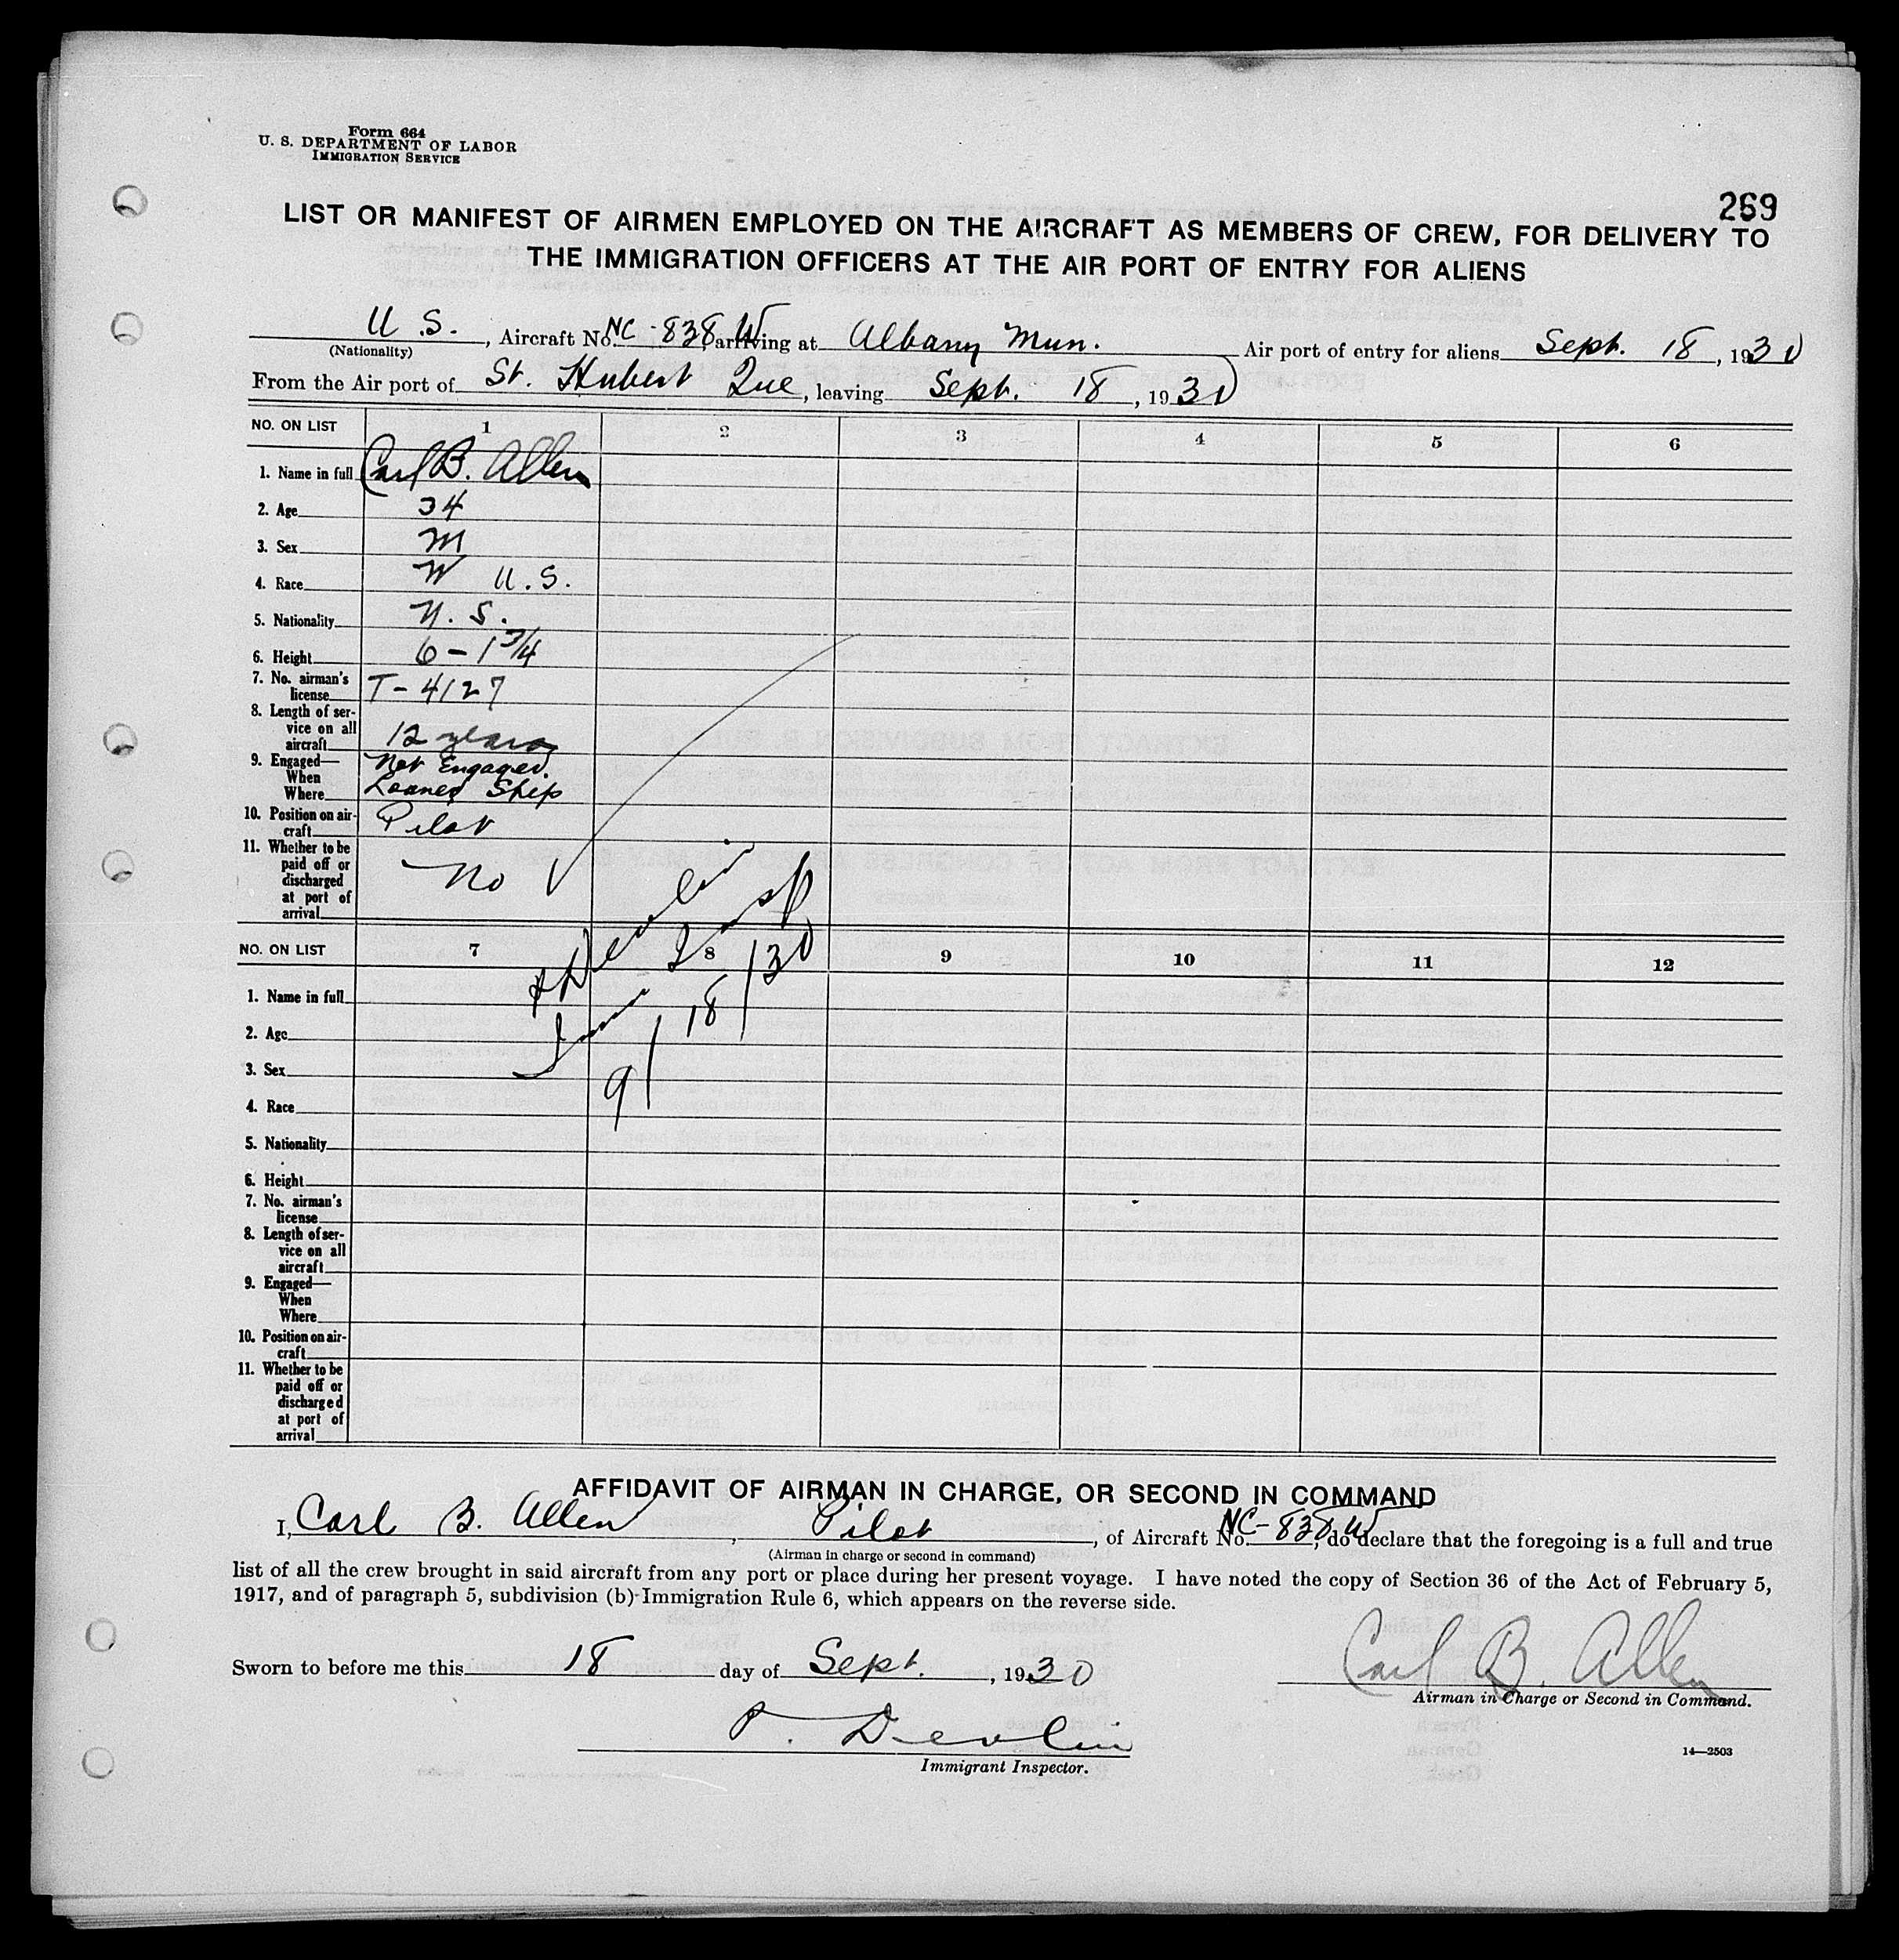 Form 664
U. S. DEPARTMENT OF LABOR
IMMIGRATION SERVICE
269
LIST OR MANIFEST OF AIRMEN EMPLOYED ON THE AIRCRAFT AS MEMBERS OF CREW, FOR DELIVERY TO
THE IMMIGRATION OFFICERS AT THE AIR PORT OF ENTRY FOR ALIENS
U.S., Aircraft No. NC-838W, arriving at Albany Mun. Air port of entry for aliens Sept. 18, 1930
(Nationality)
From the Air port of St. Hubert Que, leaving Sept. 18, 1930
NO. ON LIST 1 2 3 4 5 6
1. Name in full Carl B. Allen
2. Age 34
3. Sex M
4. Race W U.S.
5. Nationality U.S.
6. Height 6-1 3/4
7. No. airman's
license T-4127
8. Length of ser-
vice on all
aircraft 12 years
9. Engaged— Not Engaged.
When
Where Loaned Ship
10. Position on air-
craft Pilot
11. Whether to be
paid off or
discharged
at port of
arrival No
Devlin
Imm Insp
9/18/30
NO. ON LIST 7 8 9 10 11 12
1. Name in full
2. Age
3. Sex
4. Race
5. Nationality
6. Height
7. No. airman's
license
8. Length of ser-
vice on all
aircraft
9. Engaged—
When
Where
10. Position on air-
craft
11. Whether to be
paid off or
discharged
at port of
arrival
AFFIDAVIT OF AIRMAN IN CHARGE, OR SECOND IN COMMAND
I, Carl B. Allen, Pilot, of Aircraft No. NC-838W, do declare that the foregoing is a full and true
(Airman in charge or second in command)
list of all the crew brought in said aircraft from any port or place during her present voyage. I have noted the copy of Section 36 of the Act of February 5,
1917, and of paragraph 5, subdivision (b) Immigration Rule 6, which appears on the reverse side.
Carl B. Allen
Sworn to before me this 18 day of Sept., 1930
Airman in Charge or Second in Command.
P. Devlin
Immigrant Inspector.
14—2503